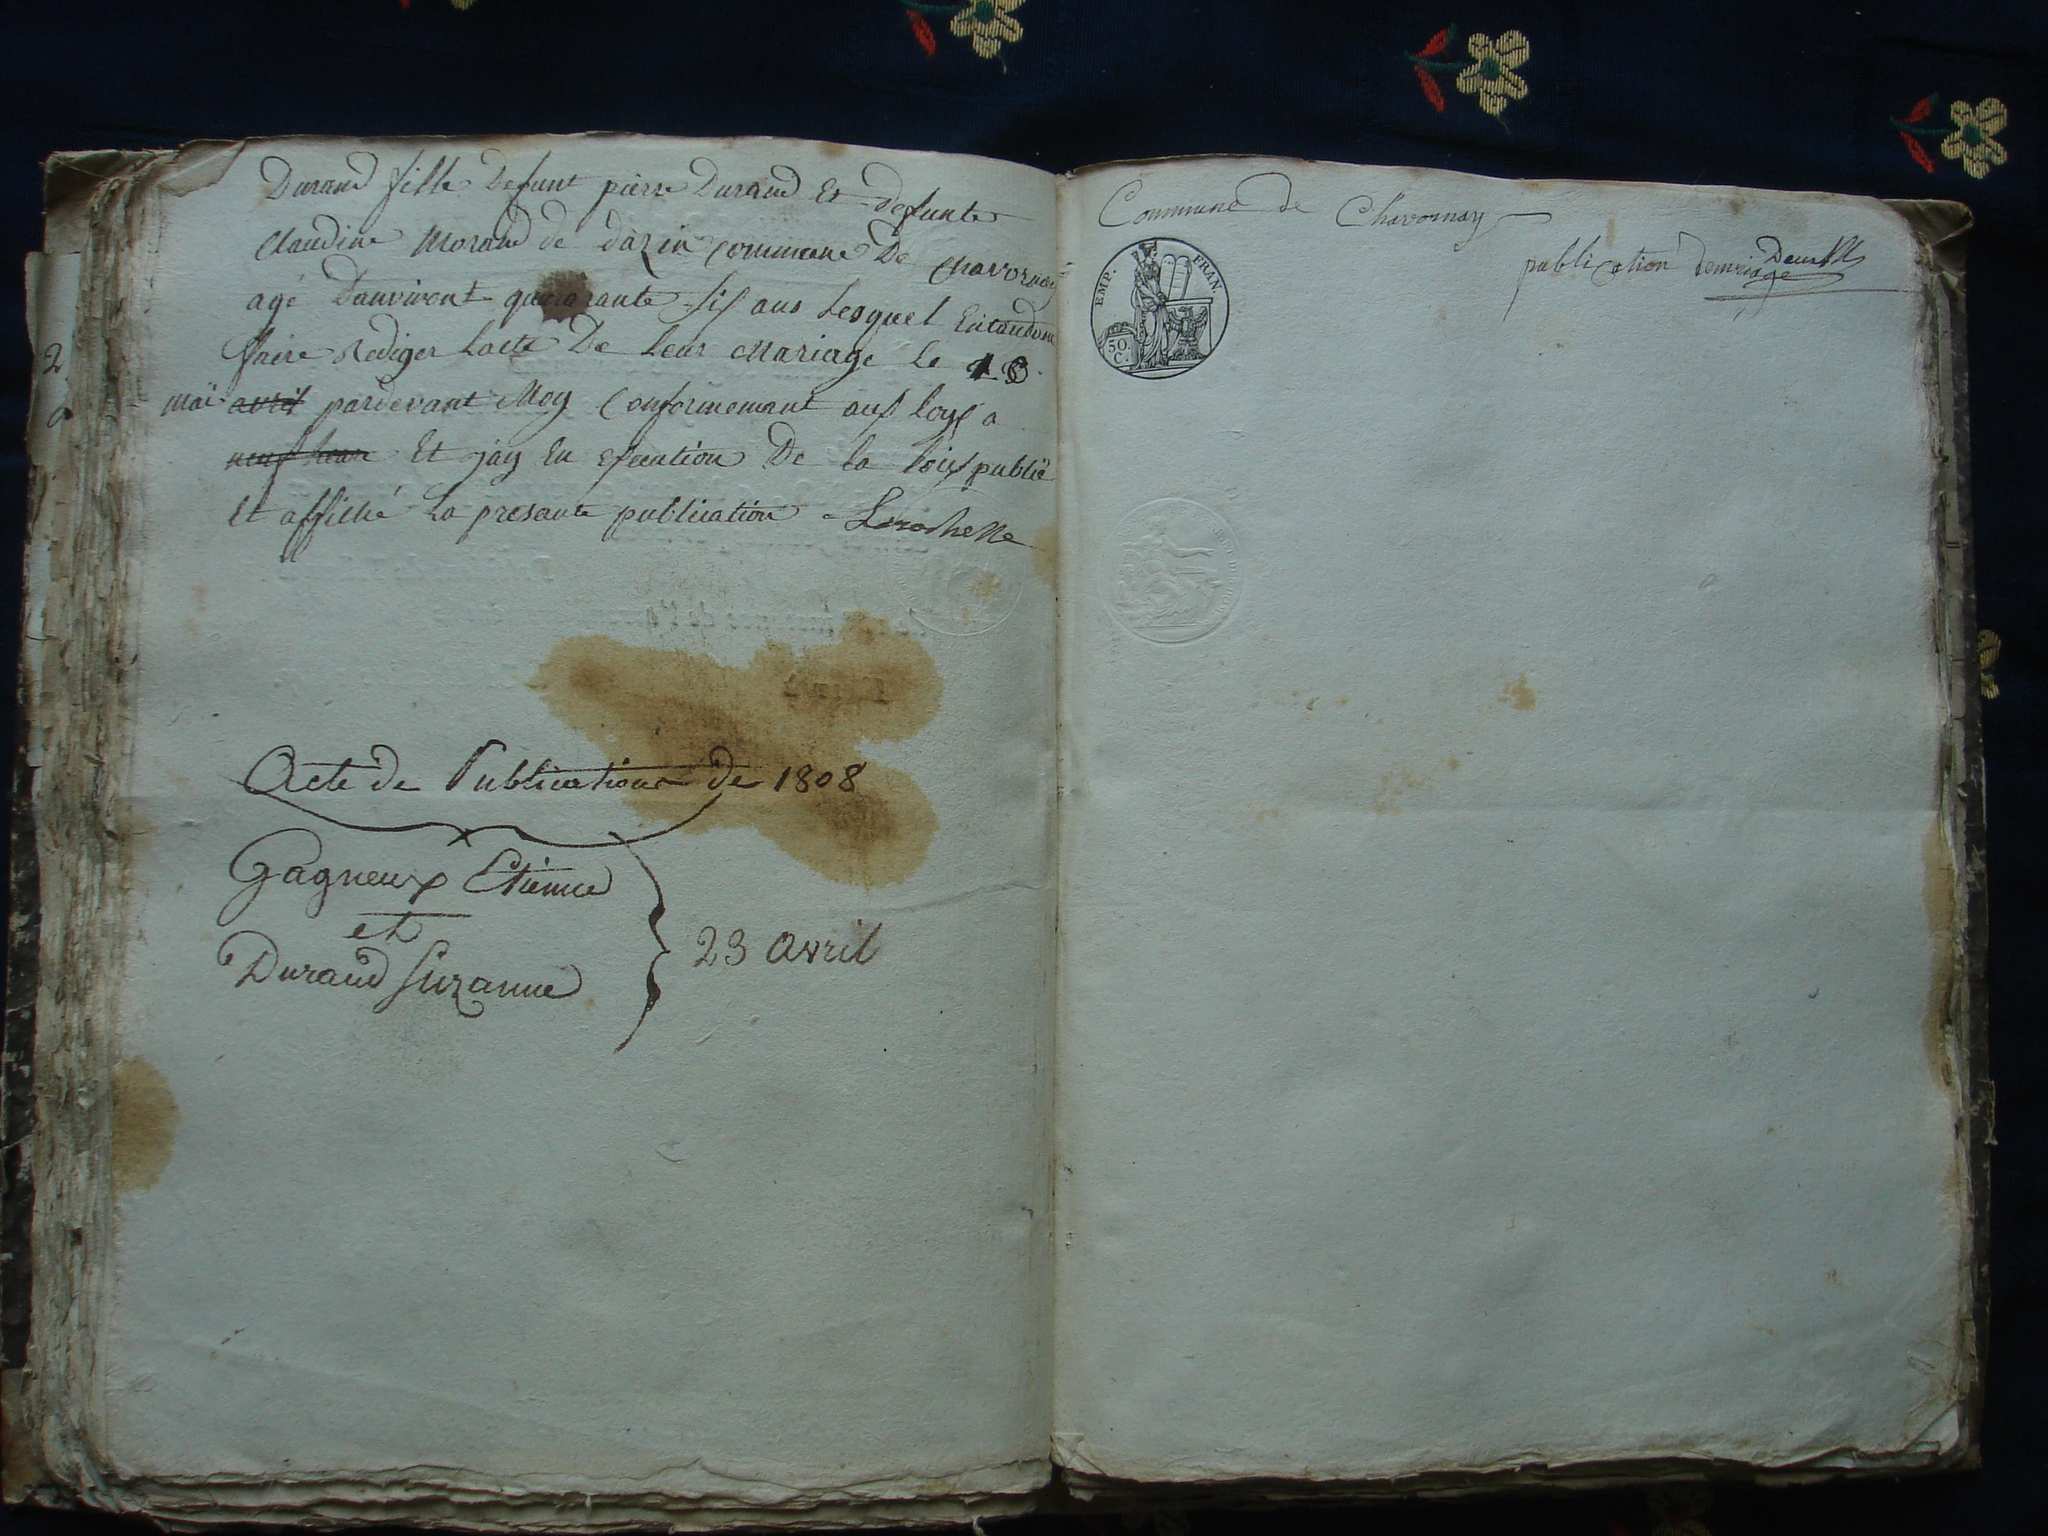 Durand fille Defunt pierre Durand Et defunte
Claudine Morand de dazin commune De Chavornay
agé Danviront quararante six ans Lesquel Entandons
faire Rediger Lacte De Leur Mariage Le 18
mai avril pardevant Moy Conformemant aux loys a
neuf heur Et jay En execution De la loix publié
Et affiché La presante publication - Larochelle
Acte de Publications de 1808
Gagneux Etienne
et
Durand Suzanne
23 avril
2
Commune de Chavornay
publication demriage
EMP. FRAN.
50.
C.